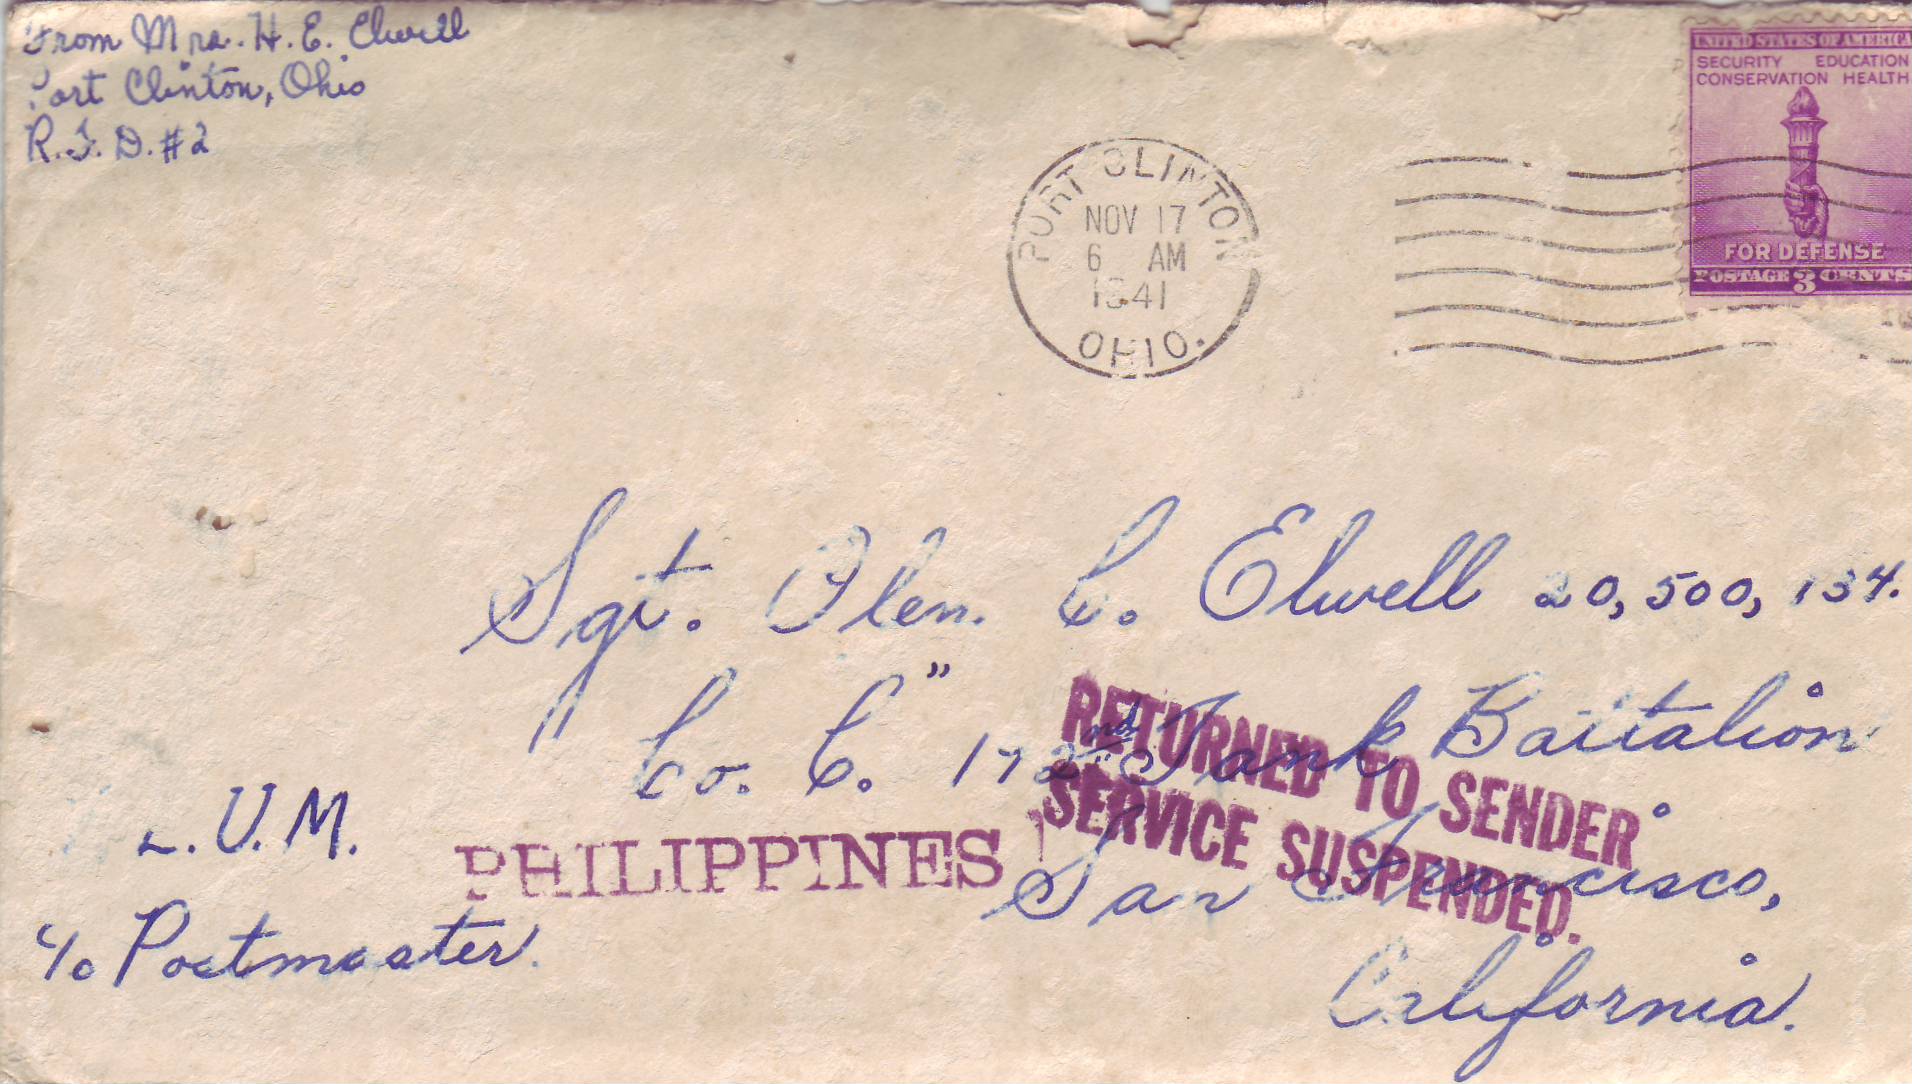 From Mrs. H. E. Elwell
Port Clinton, Ohio
R.F.D. #2
UNITED STATES OF AMERICA
SECURITY EDUCATION
CONSERVATION HEALTH
FOR DEFENSE
POSTAGE 3 CENTS
PORT CLINTON
NOV 17
6 AM
1941
OHIO.
Sgt. Olen. C. Elwell 20,500,134.
Co. C." 192nd Tank Battalion
RETURNED TO SENDER
SERVICE SUSPENDED.
U.M.
PHILIPPINES
San Francisco,
c/o Postmaster.
California.